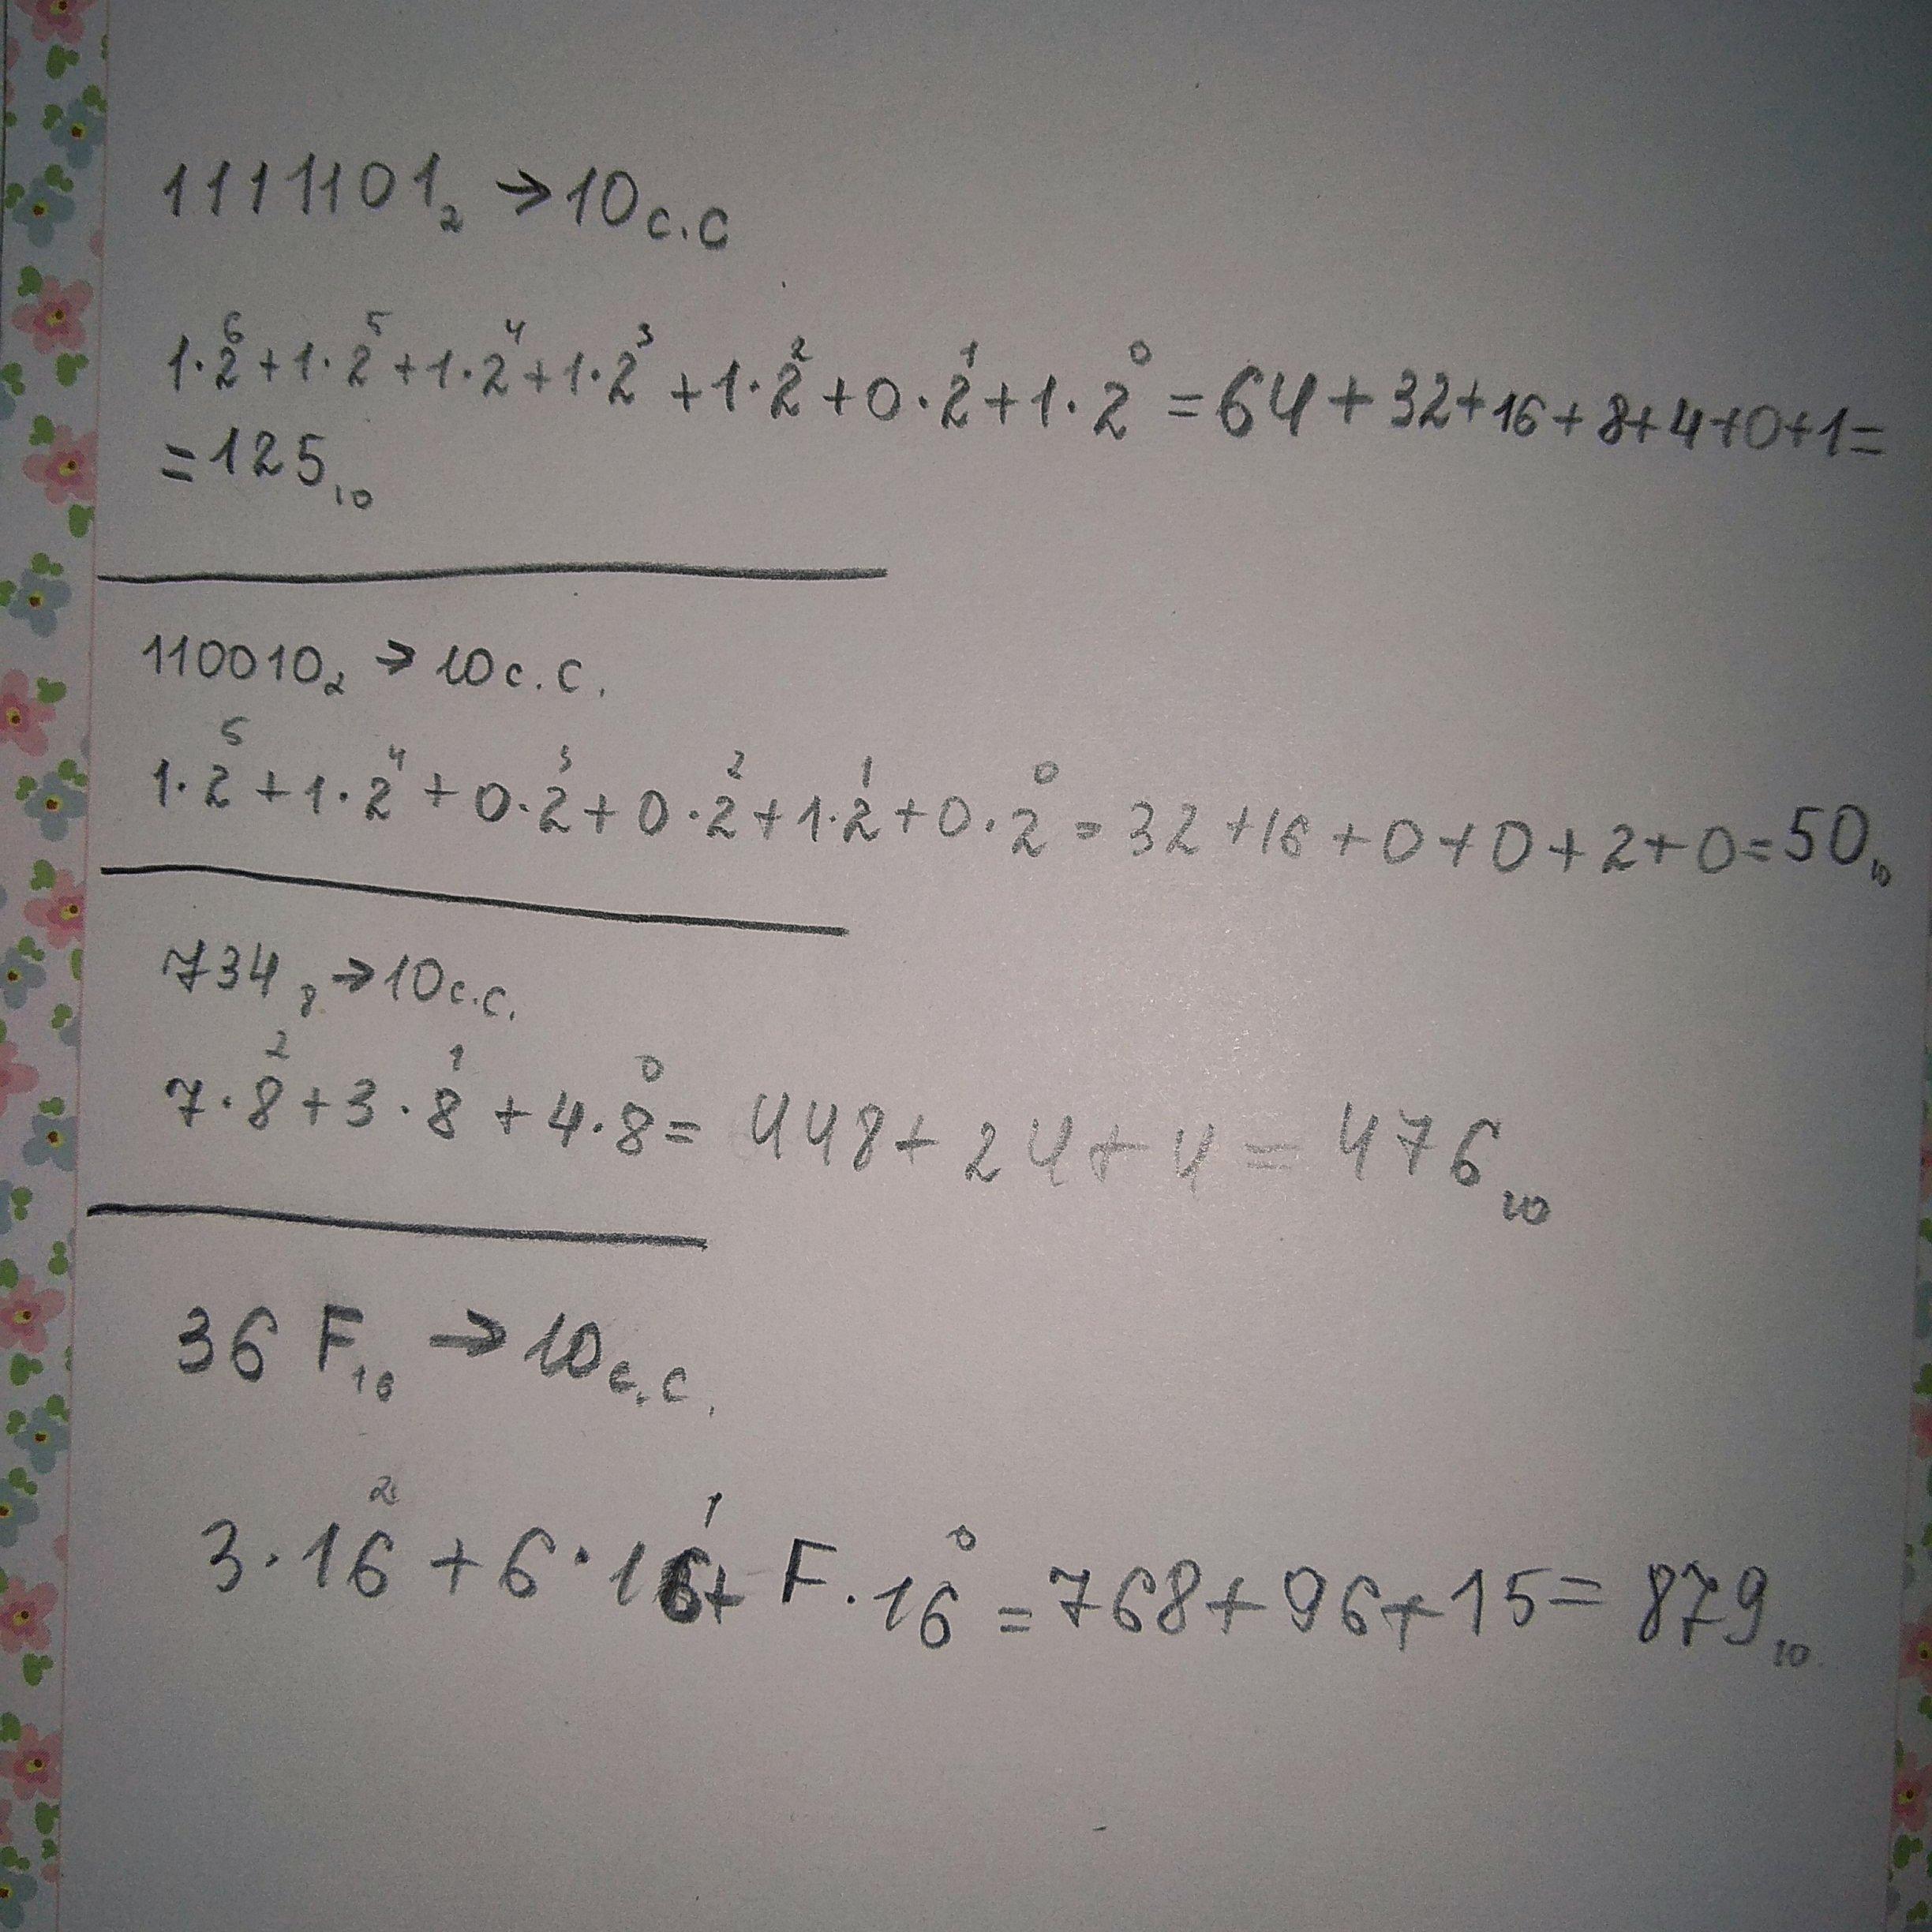 1111101₂ → 10 с.с
1·2⁶+1·2⁵+1·2⁴+1·2³+1·2²+0·2¹+1·2⁰=64+32+16+8+4+0+1=
=125₁₀
110010₂ → 10 с.с.
1·2⁵+1·2⁴+0·2³+0·2²+1·2¹+0·2⁰=32+16+0+0+2+0=50₁₀
734₈ → 10 с.с.
7·8²+3·8¹+4·8⁰=448+24+4=476₁₀
36F₁₆ → 10 с.с.
3·16²+6·16¹+F·16⁰=768+96+15=879₁₀